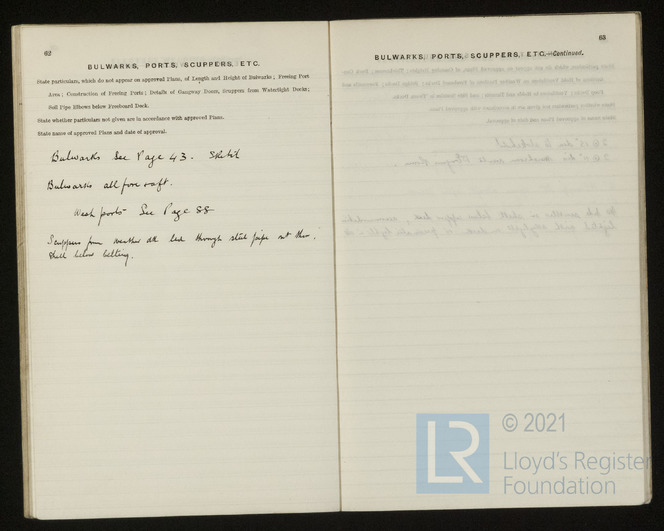 62
BULWARKS, PORTS, SCUPPERS, ETC.
State particulars, which do not appear on approved Plans, of Length and Height of Bulwarks; Freeing Port
Area; Construction of Freeing Ports; Details of Gangway Doors, Scuppers from Watertight Decks;
Soil Pipe Elbows below Freeboard Deck.
State whether particulars not given are in accordance with approved Plans.
State name of approved Plans and date of approval.
Bulwarks See Page 43. Sketch
Bulwarks all fore & aft.
Wash ports See Page 88
Scuppers from weather dk led through steel pipe out thro'
shell below belting.
63
BULWARKS, PORTS, SCUPPERS, ETC.—Continued.
LR
© 2021
Lloyd's Register
Foundation